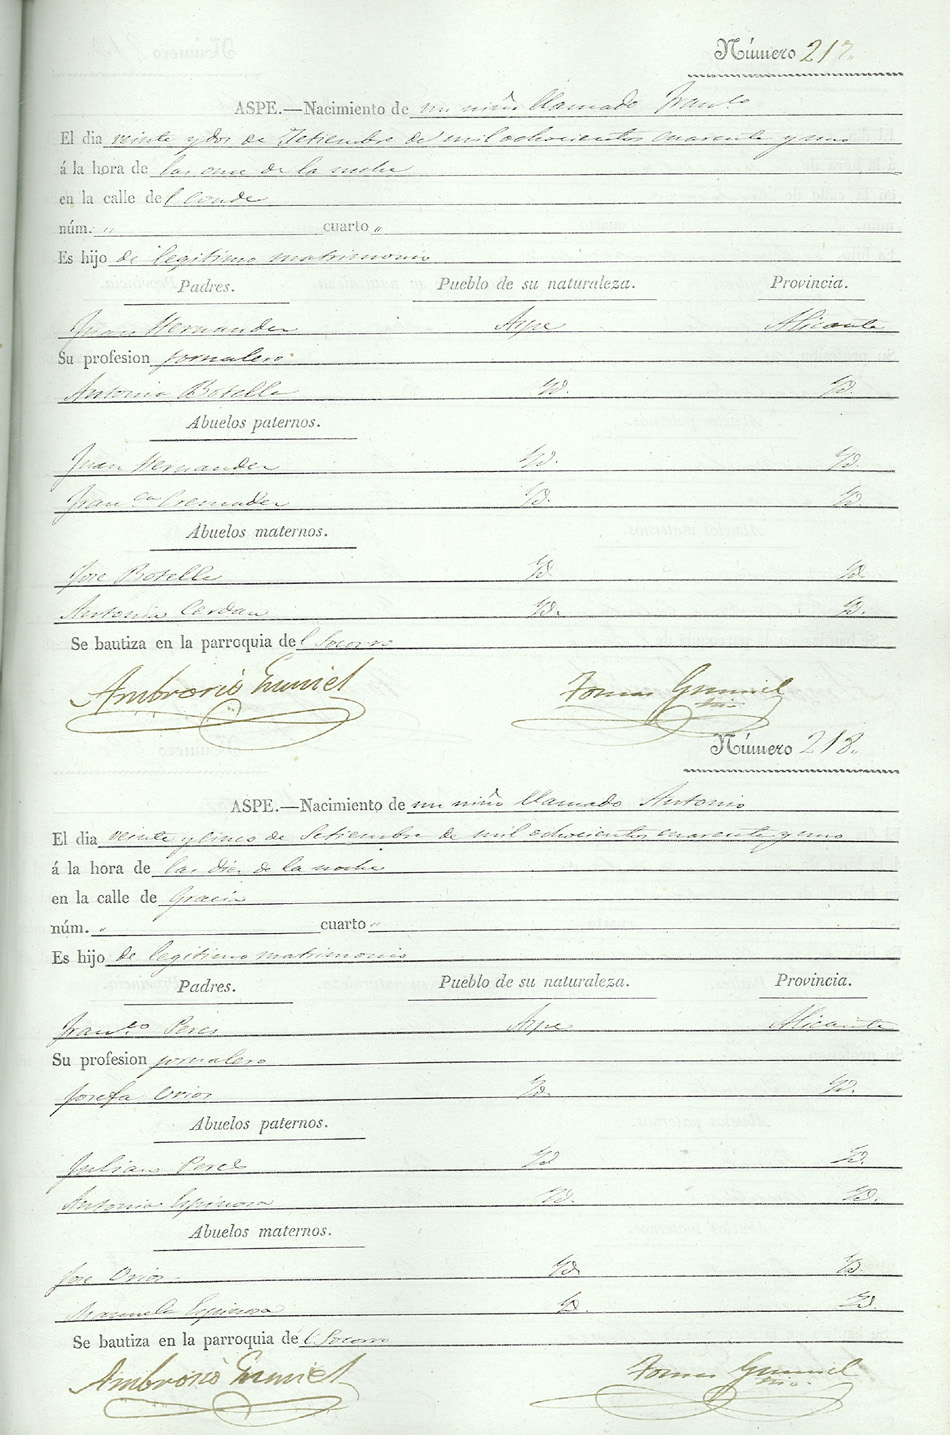 Número 217.
ASPE.—Nacimiento de un niño llamado Franco
El dia veinte y dos de Setiembre de mil ochocientos cuarenta y uno
á la hora de las once de la noche
en la calle del Conde
núm. " cuarto "
Es hijo de legitimo matrimonio
Padres. Pueblo de su naturaleza. Provincia.
Juan Hernandez Aspe Alicante
Su profesion jornalero
Antonia Botella Yd. Yd.
Abuelos paternos.
Juan Hernandez Yd. Yd.
Franca Cremades Yd. Yd.
Abuelos maternos.
Jose Botella Yd. Yd.
Antonia Cerdan Yd. Yd.
Se bautiza en la parroquia del Socorro
Ambrosio Tomas
Número 218.
ASPE.—Nacimiento de un niño llamado Antonio
El dia veinte y cinco de Setiembre de mil ochocientos cuarenta y uno
á la hora de las diez de la noche
en la calle de Gracia
núm. " cuarto "
Es hijo de legitimo matrimonio
Padres. Pueblo de su naturaleza. Provincia.
Franco Peres Aspe Alicante
Su profesion jornalero
Josefa Yd. Yd.
Abuelos paternos.
Julian Peres Yd. Yd.
Antonia Espinosa Yd. Yd.
Abuelos maternos.
Jose Yd. Yd.
Manuela Espinosa Yd. Yd.
Se bautiza en la parroquia del Socorro
Ambrosio Tomas